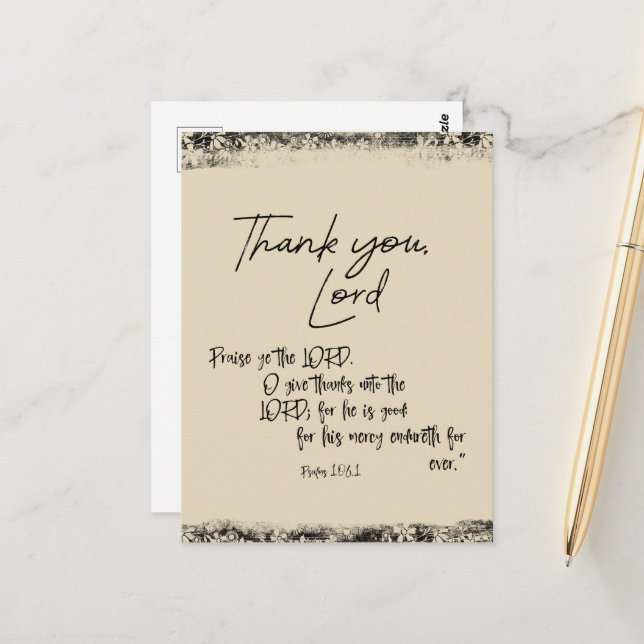 Thank you,
Lord
Praise ye the LORD.
O give thanks unto the
LORD; for he is good;
for his mercy endureth for
ever."
Psalms 106.1